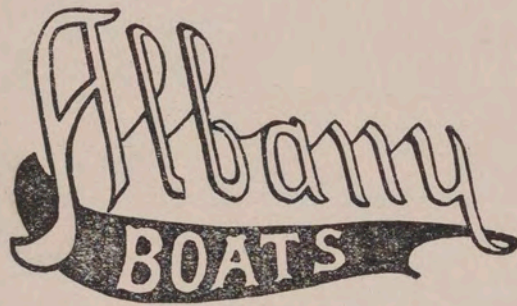 Albany
BOATS